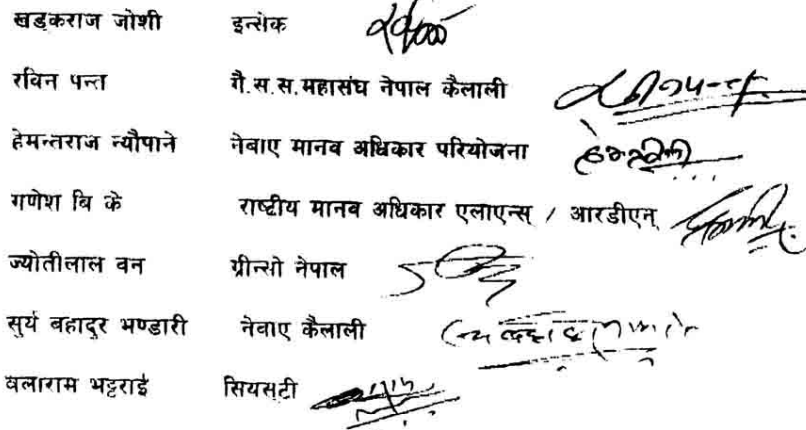 खडकराज जोशी इन्सेक
रविन पन्त गै.स.स.महासंघ नेपाल कैलाली
हेमन्तराज न्यौपाने नेवाए मानव अधिकार परियोजना
गणेश वि के राष्टीय मानव अधिकार एलाएन्स / आरडीएन्
ज्योतीलाल वन ग्रीन्सो नेपाल
सुर्य बहादुर भण्डारी नेवाए कैलाली
वलाराम भट्टराई सियसटी